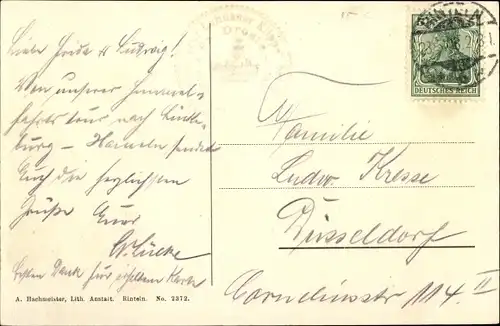 Liebe Frieda u. Ludwig!
Von unserer Himmel-
fahrtstour nach Bücke-
burg – Hameln sendet
Euch die herzlichsten
Grüße Euer
G. Lücke
Besten Dank für erhaltene Karte
A. Hachmeister, Lith. Anstalt. Rinteln. No. 2372.
DEUTSCHES REICH
Familie
Ludw. Kresse
Düsseldorf
Corneliusstr 114 II